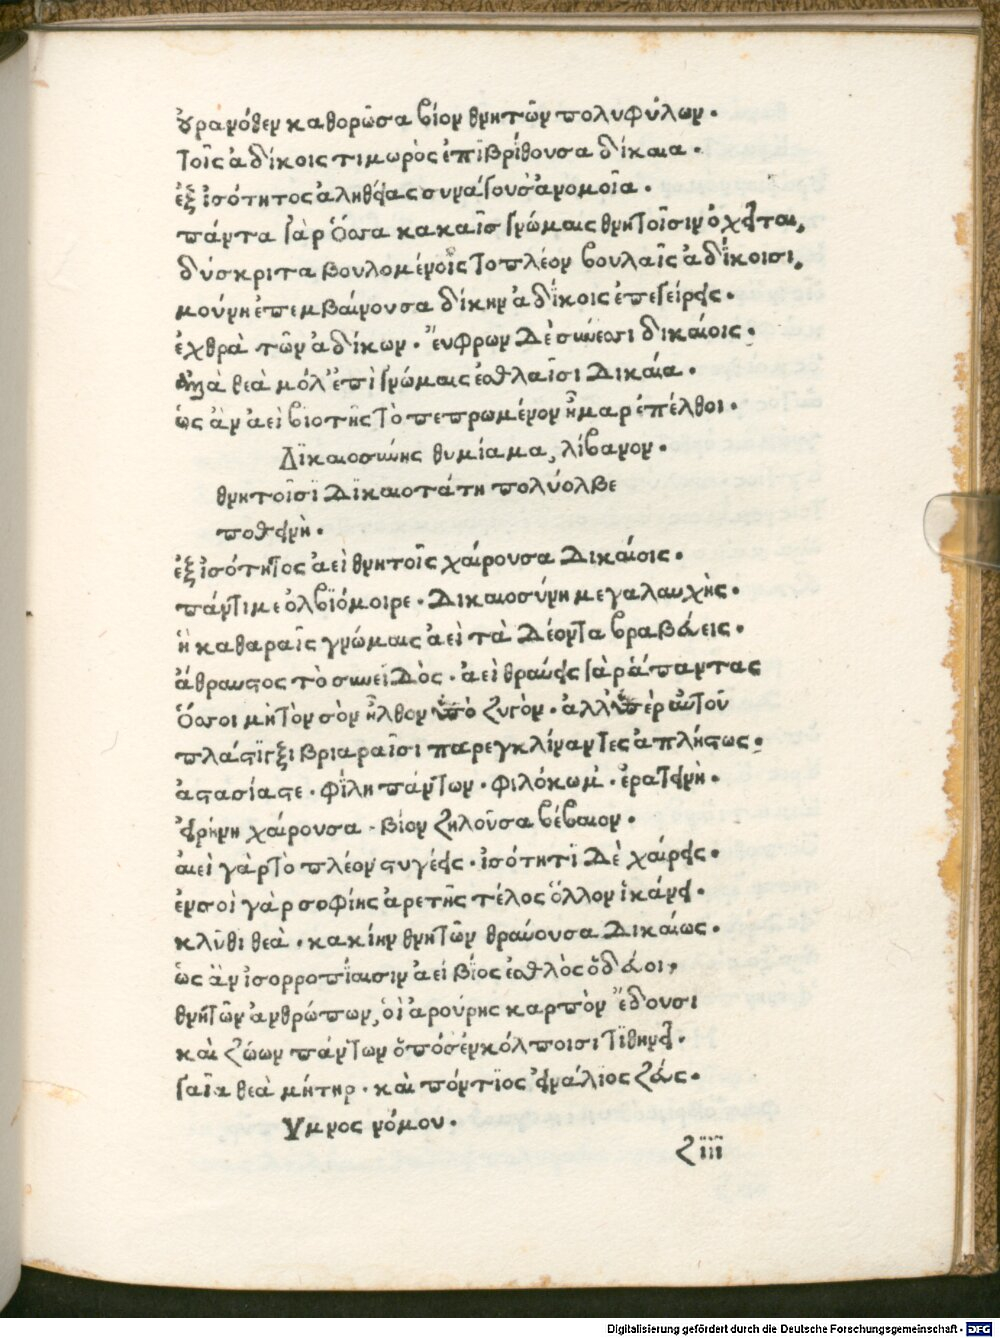 οὐρανόθεν καθορῶσα βίον θνητῶν πολυφύλων.
τοῖς ἀδίκοις τιμωρὸς ἐπιβρίθουσα δίκαια.
ἐξ ἰσότητος ἀληθείας συνάγουσ' ἀνομοῖα.
πάντα γὰρ ὅσσα κακαῖς γνώμαις θνητοῖσιν ὀχεῖται,
δύσκριτα βουλομένοις τὸ πλέον βουλαῖς ἀδίκοισι,
μούνη ἐπεμβαίνουσα δίκην ἀδίκοις ἐπεγείρεις.
ἐχθρὰ τῶν ἀδίκων. εὔφρων δὲ σύνεσσι δικαίοις.
ἀλλὰ θεὰ μόλ' ἐπὶ γνώμαις ἐσθλαῖσι δικαία.
ὡς ἂν ἀεὶ βιοτῆς τὸ πεπρωμένον ἦμαρ ἐπέλθοι.
Δικαιοσύνης θυμίαμα, λίβανον.
θνητοῖσι δικαιοτάτη πολύολβε
ποθεινή.
ἐξ ἰσότητος ἀεὶ θνητοῖς χαίρουσα δικαίοις.
πάντιμε ὀλβιόμοιρε. Δικαιοσύνη μεγαλαυχής.
ἣ καθαραῖς γνώμαις ἀεὶ τὰ δέοντα βραβεύεις.
ἄθραυστος τὸ συνειδός. ἀεὶ θραύεις γὰρ ἅπαντας
ὅσσοι μὴ τὸν σὸν ἦλθον ὑπὸ ζυγὸν. ἀλλ' ὑπὲρ αὐτοῦ
πλάστιγξι βριαραῖσι παρεγκλίναντες ἀπλήστως.
ἀστασίαστε. φίλη πάντων. φιλόκωμ'. ἐρατεινή.
εἰρήνη χαίρουσα. βίον ζηλοῦσα βέβαιον.
αἰεὶ γὰρ τὸ πλέον στυγέεις. ἰσότητι δὲ χαίρεις.
ἐν σοὶ γὰρ σοφίης ἀρετῆς τέλος ὄλλον ἱκάνει.
κλῦθι θεὰ. κακίην θνητῶν θραύουσα δικαίως.
ὡς ἂν ἰσορροπίαισιν ἀεὶ βίος ἐσθλὸς ὁδεύοι,
θνητῶν ἀνθρώπων, οἳ ἀρούρης καρπὸν ἔδουσι
καὶ ζώων πάντων ὁπόσ' ἐν κόλποισι τιθηνεῖ.
γαῖα θεὰ μήτηρ. καὶ πόντιος εἰνάλιος ζεύς.
Υμνος νόμου.
ζiii